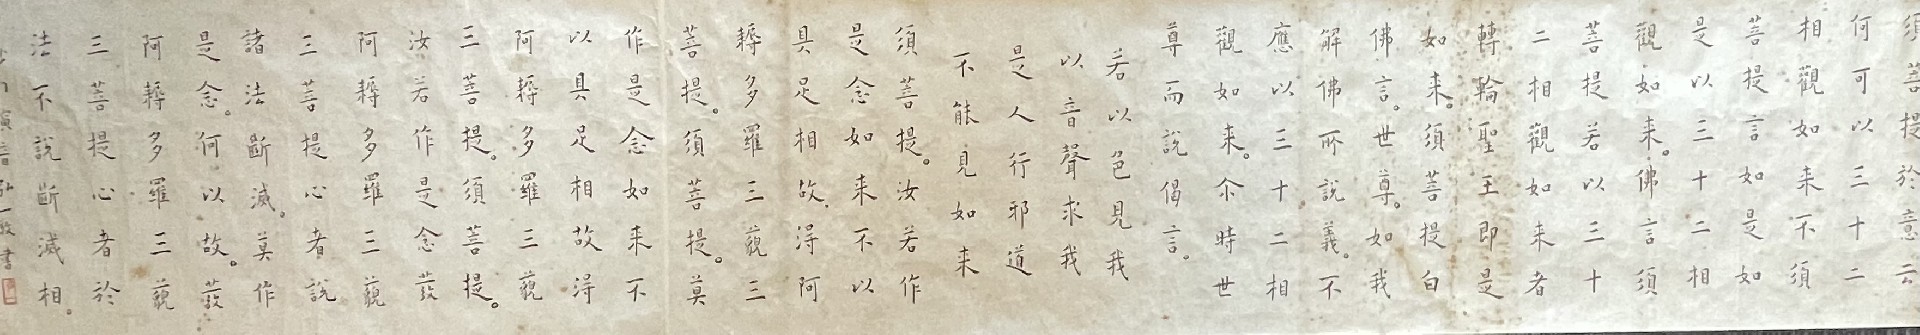 須菩提於意云
何可以三十二
相觀如来不須
菩提言如是如
是以三十二相
觀如来。佛言須
菩提若以三十
二相觀如来者
轉輪聖王即是
如来。須菩提白
佛言。世尊。如我
解佛所說義。不
應以三十二相
觀如来。尒時世
尊而說偈言。
若以色見我
以音聲求我
是人行邪道
不能見如来
須菩提。汝若作
是念如来不以
具足相故。淂阿
耨多羅三藐三
菩提。須菩提。莫
作是念如来不
以具足相故淂
阿耨多羅三藐
三菩提。須菩提。
汝若作是念發
阿耨多羅三藐
三菩提心者說
諸法斷滅。莫作
是念。何以故。發
阿耨多羅三藐
三菩提心者於
法不說斷滅相。
演音弘一敬書